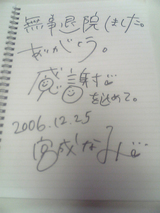 無事退院しました。
ありがとう。
感謝
を込めて。
2006.12.25
宮成なみ